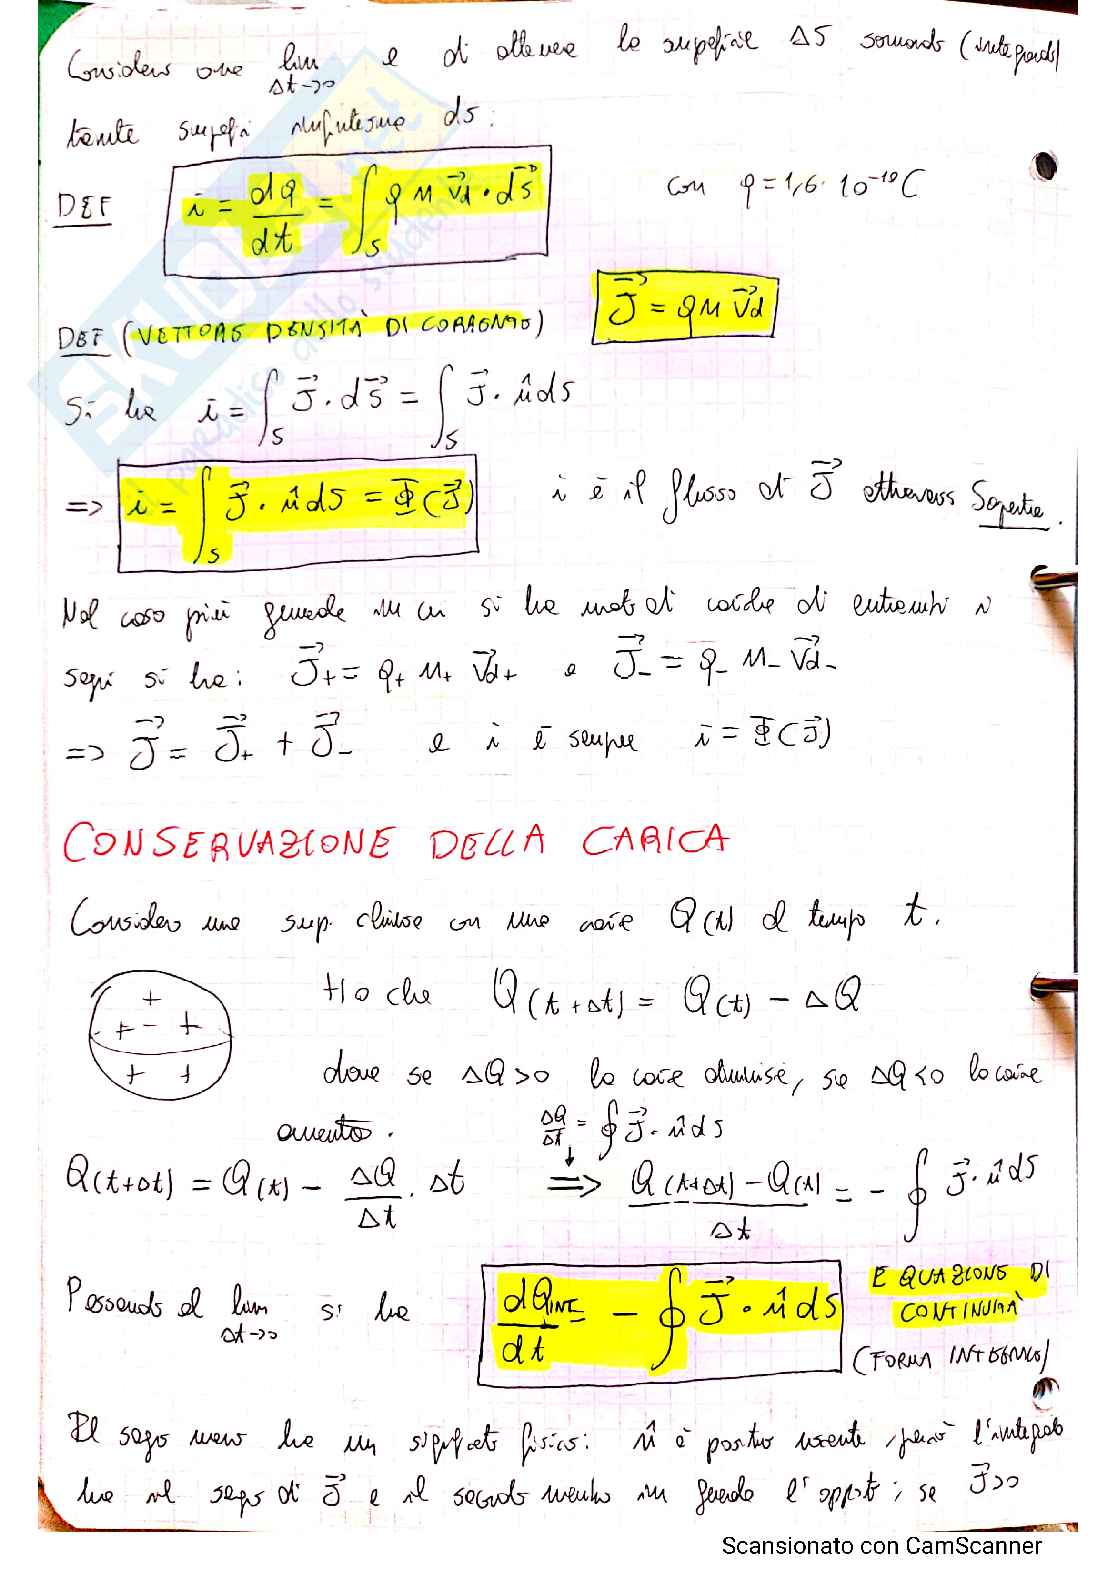 Considero ora lim Δt→0 e di ottenere la superficie ΔS sommando (integrando)
tante superfi infinitesime dS:
DEF i = dq/dt = ∫_S q n v⃗d · dS⃗ con q = 1,6 · 10^-19 C
DEF (VETTORE DENSITÀ DI CORRENTE) J⃗ = q n v⃗d
Si ha i = ∫_S J⃗ · dS⃗ = ∫_S J⃗ · û dS
=> i = ∫_S J⃗ · û dS = Φ(J⃗) i è il flusso di J⃗ attraverso S aperta.
Nel caso più generale in cui si ha moto di cariche di entrambi i
segni si ha: J⃗+ = q+ n+ v⃗d+ e J⃗- = q- n- v⃗d-
=> J⃗ = J⃗+ + J⃗- e i è sempre i = Φ(J⃗)
CONSERVAZIONE DELLA CARICA
Considero una sup. chiusa con una carica Q(t) al tempo t.
+
+ - +
+ +
Ho che Q(t+Δt) = Q(t) - ΔQ
dove se ΔQ>0 la carica diminuisce, se ΔQ<0 la carica
aumenta.
ΔQ/Δt = ∮ J⃗ · û dS
Q(t+Δt) = Q(t) - ΔQ/Δt · Δt => Q(t+Δt) - Q(t)/Δt = - ∮ J⃗ · û dS
Passando al lim Δt→0 si ha dQINT/dt = - ∮ J⃗ · û dS EQUAZIONE DI
CONTINUITÀ
(FORMA INTEGRALE)
Il segno meno ha un significato fisico: û è positivo uscente, perciò l'integrale
ha il segno di J⃗ e il secondo membro in generale l'opposto; se J⃗>0
Scansionato con CamScanner